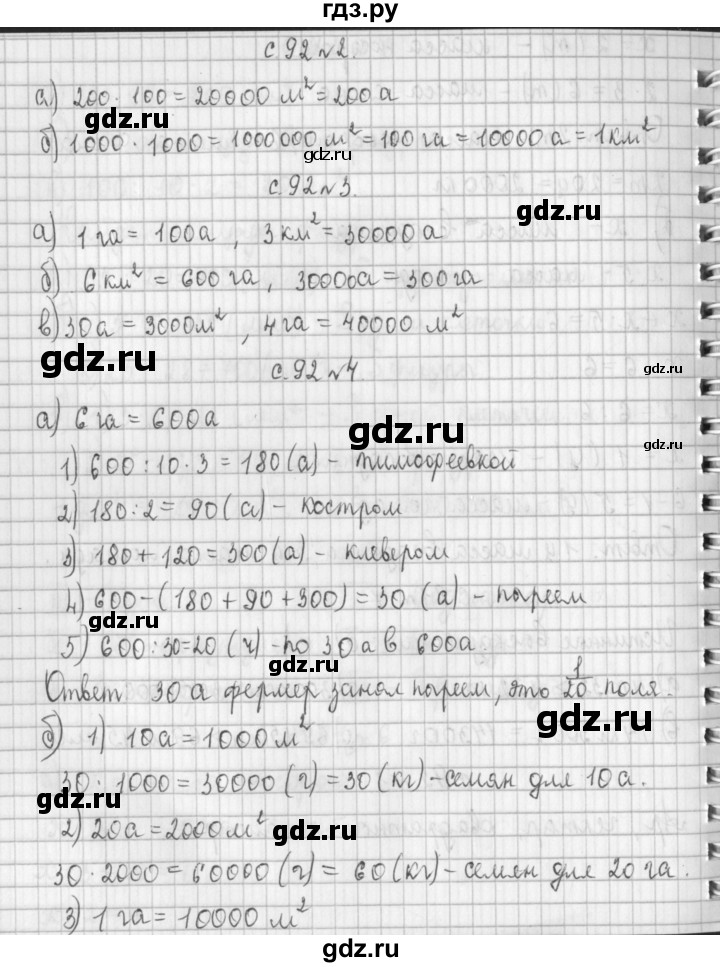 гдз.ру
с.92 №2.
а) 200 · 100 = 20000 м² = 200 а
gdz.ru
б) 1000 · 1000 = 1000000 м² = 100 га = 10000 а = 1 км²
gdz.ru
с.92 №3.
gdz.ru
а) 1 га = 100 а , 3 км² = 30000 а
б) 6 км² = 600 га , 30000а = 300 га
в) 30 а = 3000 м² , 4 га = 40000 м²
gdz.ru gdz.ru gdz.ru
с.92 №4
а) 6 га = 600 а
gdz.ru gdz.ru
1) 600 : 10 · 3 = 180 (а) - тимофеевкой
2) 180 : 2 = 90 (а) - костром
3) 180 + 120 = 300 (а) - клевером
gdz.ru
4) 600 - (180 + 90 + 300) = 30 (а) - пыреем
gdz.ru
5) 600 : 30 = 20 (ч) - по 30 а в 600а.
gdz.ru
Ответ 30 а фермер занял пыреем, это 1/20 поля.
gdz.ru
б) 1) 10а = 1000 м²
30 · 1000 = 30000 (г) = 30 (кг) - семян для 10 а.
gdz.ru
2) 20а = 2000 м²
gdz.ru
30 · 2000 = 60000 (г) = 60 (кг) - семян для 20 га.
3) 1 га = 10000 м²
gdz.ru